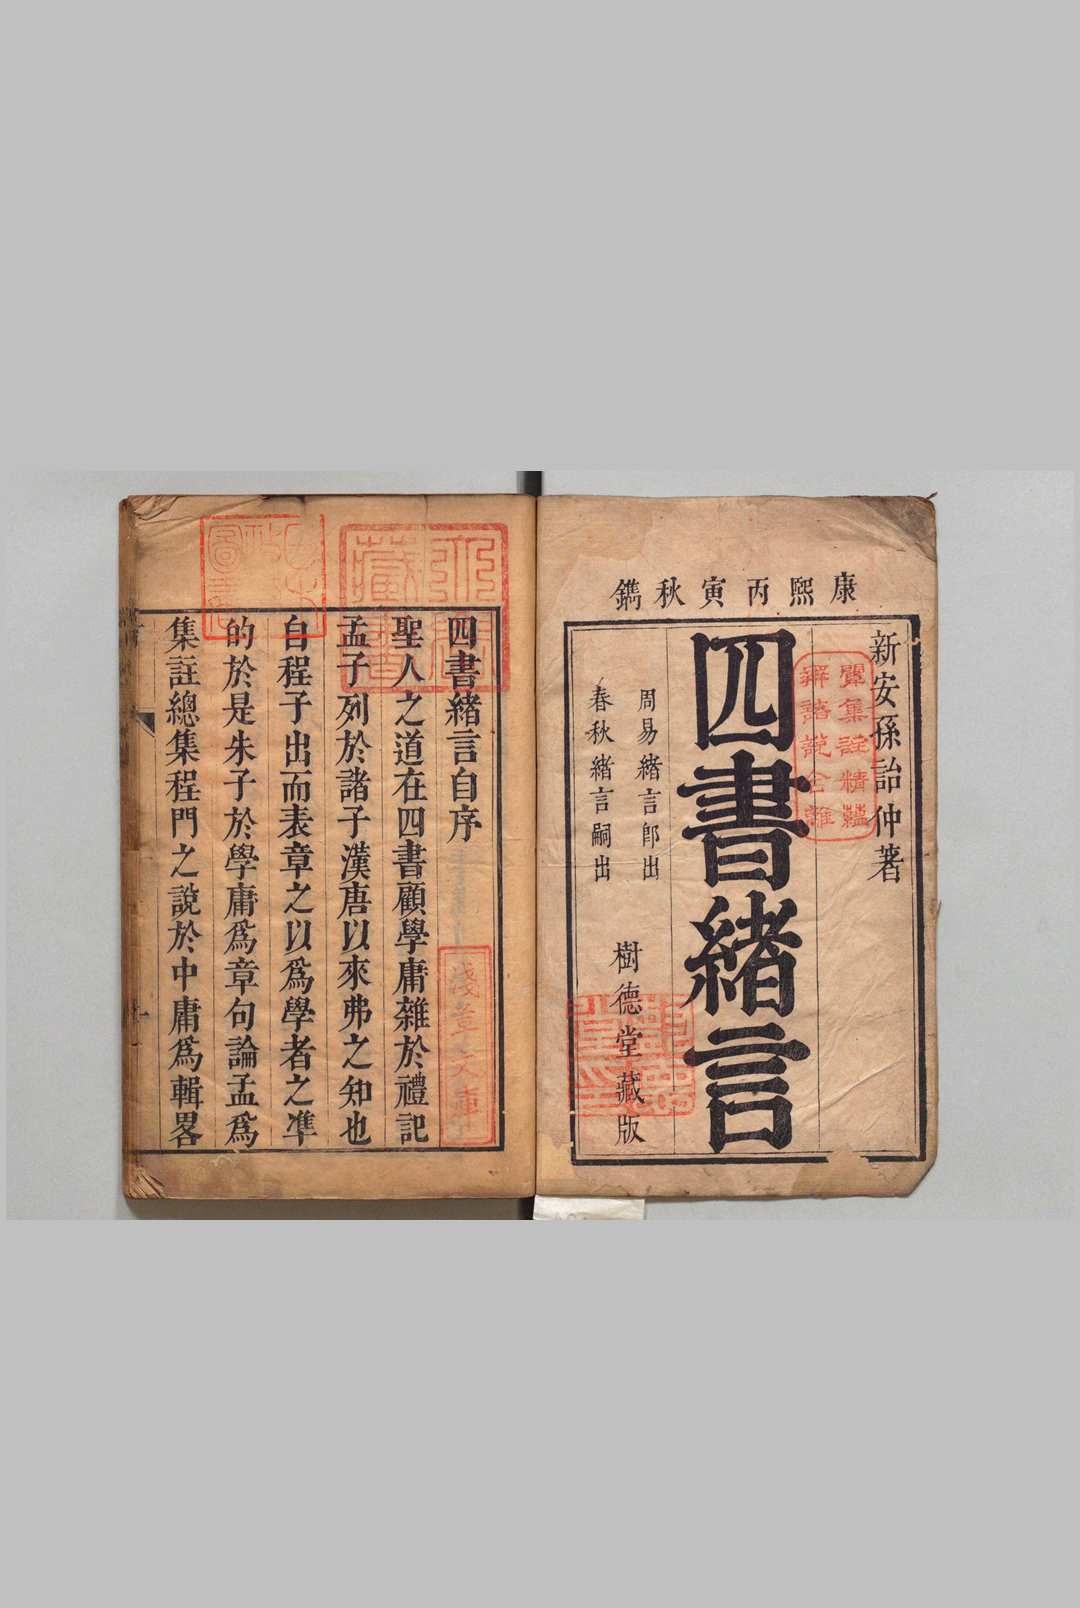 康熙丙寅秋鐫
新安孫詒仲著
闡集註精蘊
辯諸說
四書緒言
周易緒言即出
春秋緒言嗣出
樹德堂藏版
四書緒言自序
聖人之道在四書顧學庸雜於禮記
孟子列於諸子漢唐以來弗之知也
自程子出而表章之以爲學者之準
的於是朱子於學庸爲章句論孟爲
集註總集程門之說於中庸爲輯畧
淺草文庫